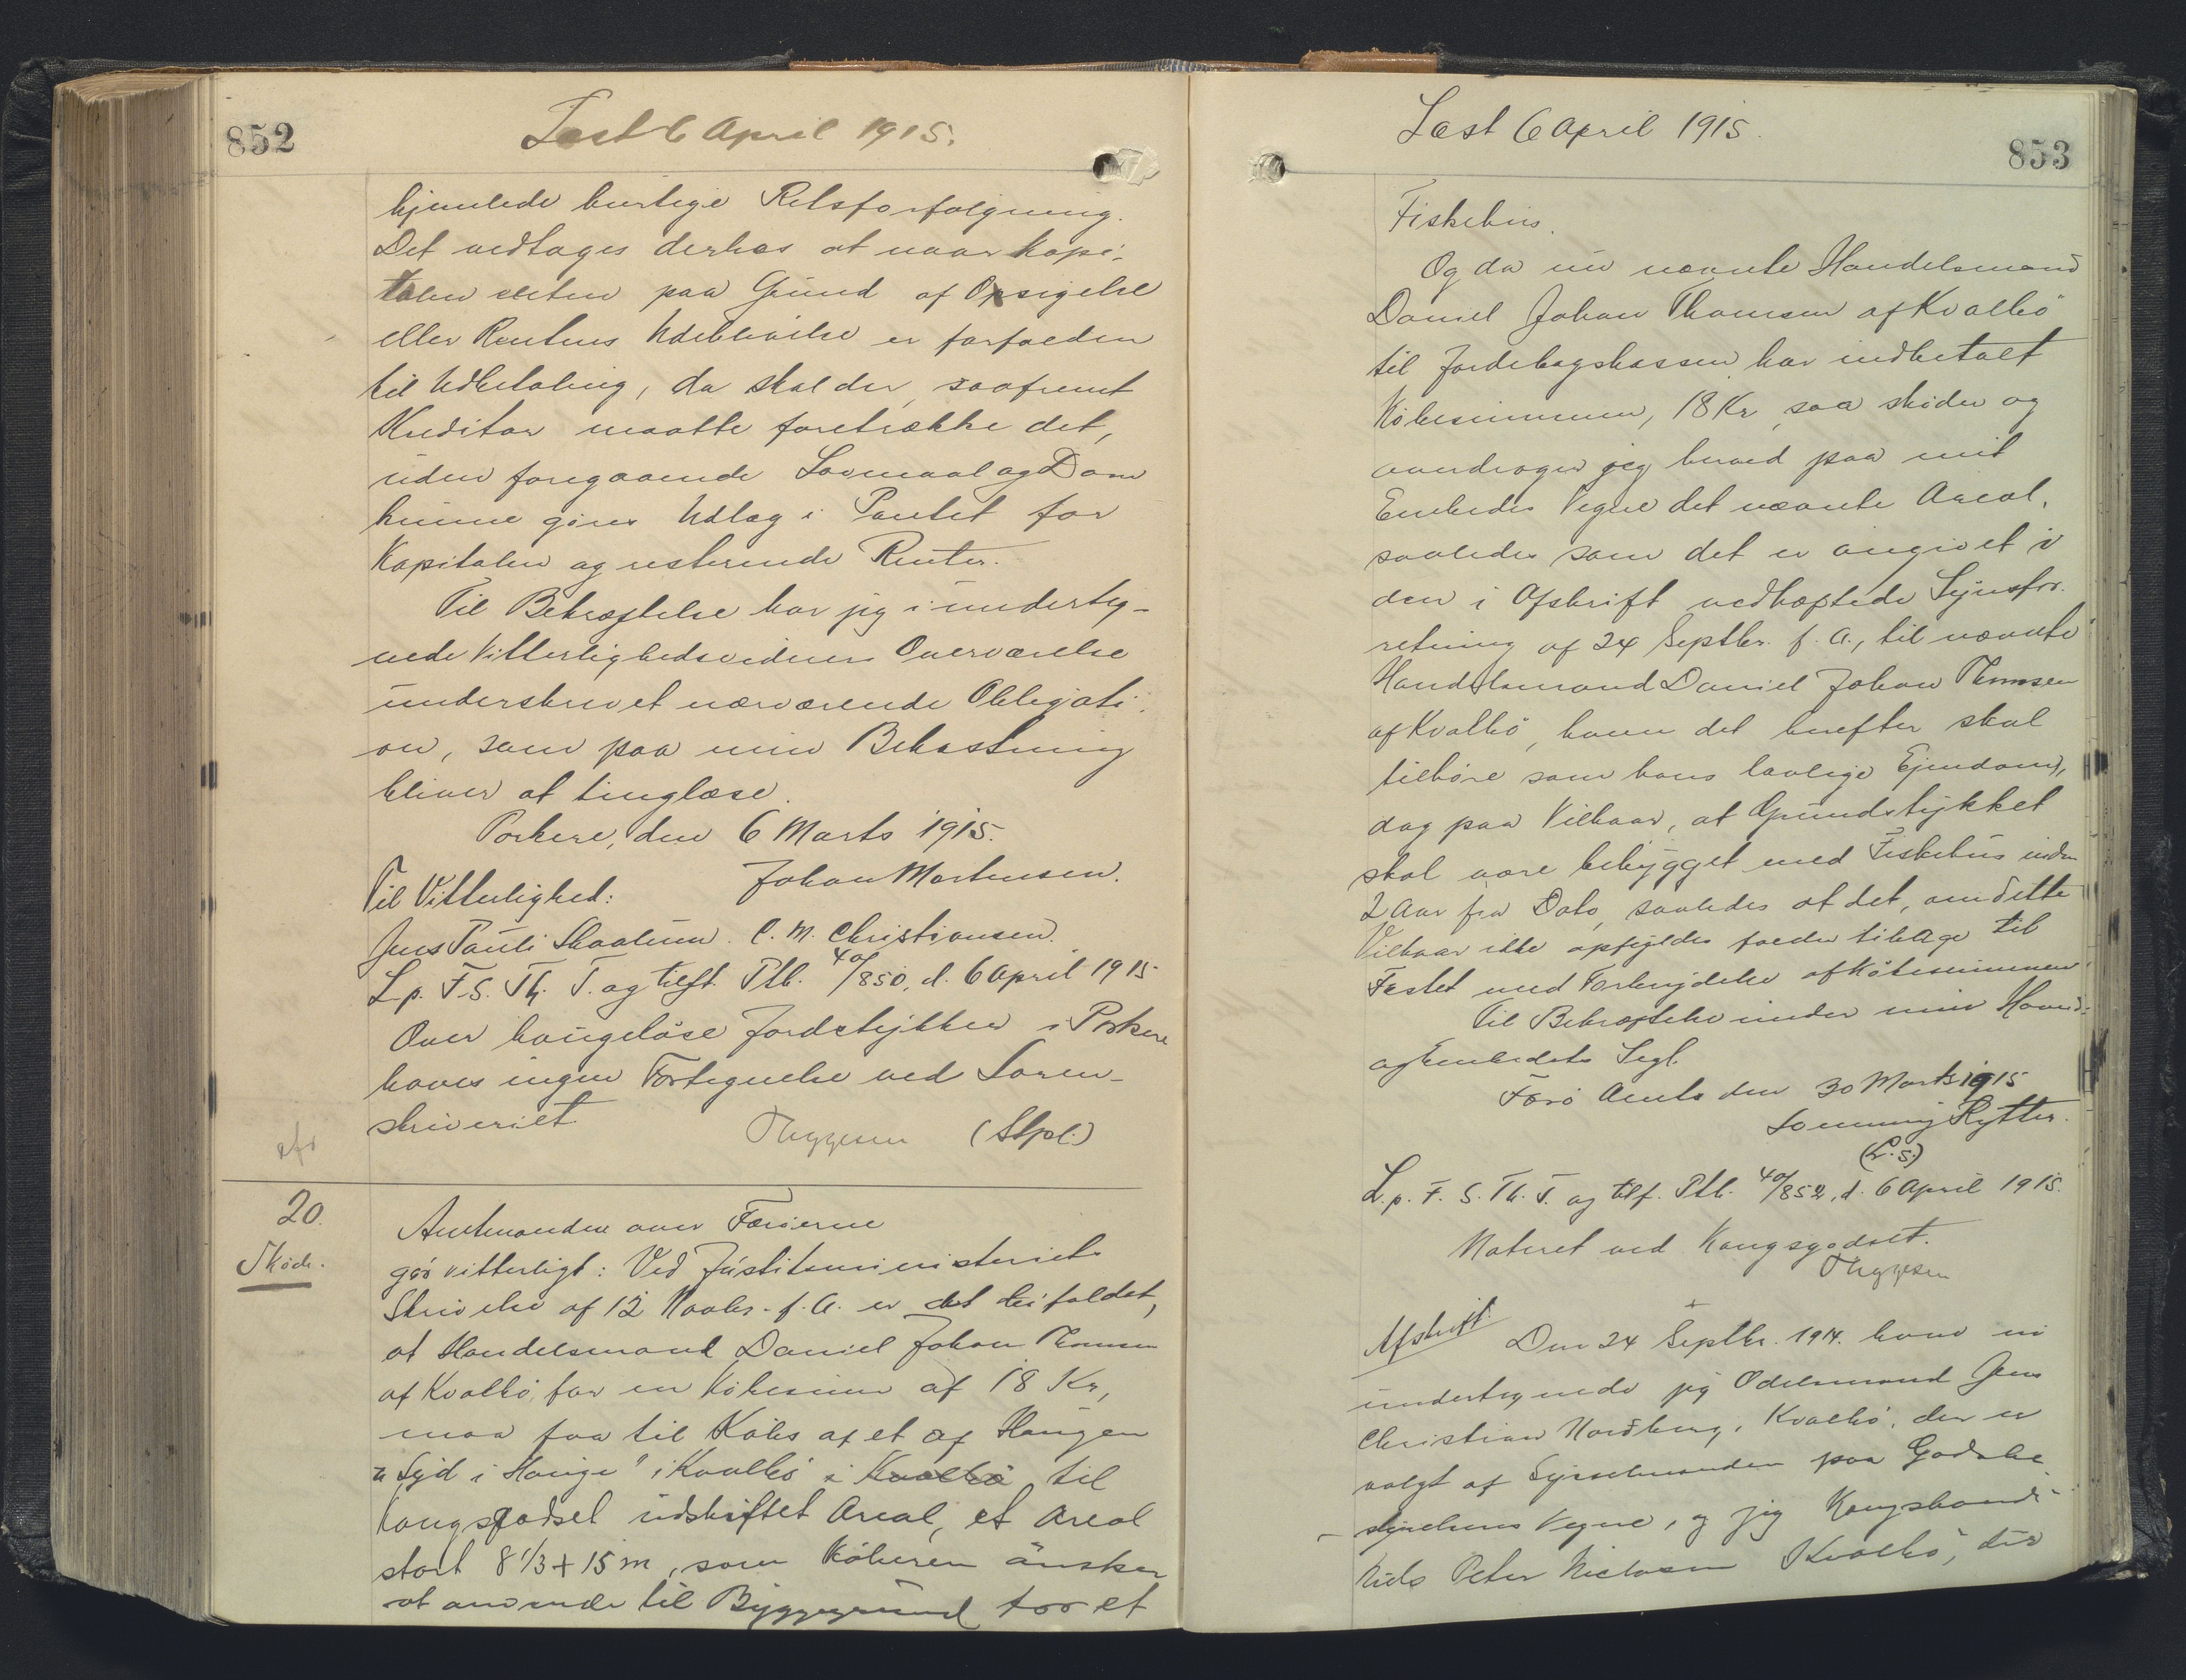 852
Læst 6 April 1915.
hjemlede hurtige Retsforfølgning.
Det vedtages derhos at naar Kapi-
talen enten paa Grund af Opsigelse
eller Rentens Udeblivelse er forfalden
til Udbetaling, da skal der, saafremt
Kreditor maatte foretrække det,
uden foregaaende Lovmaal og Dom
kunne gøres Udlæg i Pantet for
Kapitalen og resterende Renter.
Til Bekræftelse har jeg i underteg-
nede Vitterlighedsvidners Overværelse
underskrevet nærværende Obligati-
on, som paa min Bekostning
bliver at tinglæse.
Porkere, den 6 Marts 1915.
Johan Mortensen.
Til Vitterlighed:
Jens Pauli Skaalum. C. M. Christiansen.
L. p. F. S. Th. T. og tilft. Ptb. 40/850, d. 6 April 1915
Over haugeløse Jordstykker i Porkere
haves ingen Fortegnelse ved Soren-
skriveriet
Thygesen (Stpl.)
afs
20.
Skøde.
Amtmanden over Færøerne
gør vitterligt: Ved Justitsministeriets
Skrivelse af 12 Novbr. f. A. er det bifaldet,
at Handelsmand Daniel Johan Thomsen
af Kvalbø, for en Købesum af 18 Kr,
maa faa til Købs af et af Haugen
"Syd i Hauge" i Kvalbø i Kvalbø til
Kongsgodset udskiftet Areal, et Areal
stort 8 1/3 + 15 m, som Køberen ønsker
at anvende til Byggegrund for et
Læst 6 April 1915.
853
Fiskehus.
Og da nu nævnte Handelsmand
Daniel Johan Thomsen af Kvalbø
til Jordebogskassen har indbetalt
Købesummen, 18 Kr, saa skøder og
overdrager jeg herved paa mit
Embedes Vegne det nævnte Areal,
saaledes som det er angivet i
den i Afskrift vedhæftede Synsfor-
retning af 24 Septbr. f. A., til nævnte
Handelsmand Daniel Johan Thomsen
af Kvalbø, hvem det herefter skal
tilhøre som hans lovlige Ejendom,
dog paa Vilkaar, at Grundstykket
skal være bebygget med Fiskehus inden
2 Aar fra Dato, saaledes at det, om dette
Vilkaar ikke opfyldes falder tilbage til
Festet med Fortrydelse af Købesummen
Til Bekræftelse under min Haand
og Embedets Segl.
Færø Amt den 30 Marts 1915
Lonning Rytter.
(L. S.)
L. p. F. S. Th. T. og tilf. Ptb. 40/852, d. 6 April 1915.
Noteret ved Kongsgodset.
Thygesen
Afskrift.
Den 24 Septbr. 1914. have vi
undertegnede jeg Odelsmand Jens
Christian Nordberg, Kvalbø, der er
valgt af Sysselmanden paa Godsbe-
styrelsens Vegne, og jeg Kongsbonde
Niels Peter Niclasen Kvalbø, der